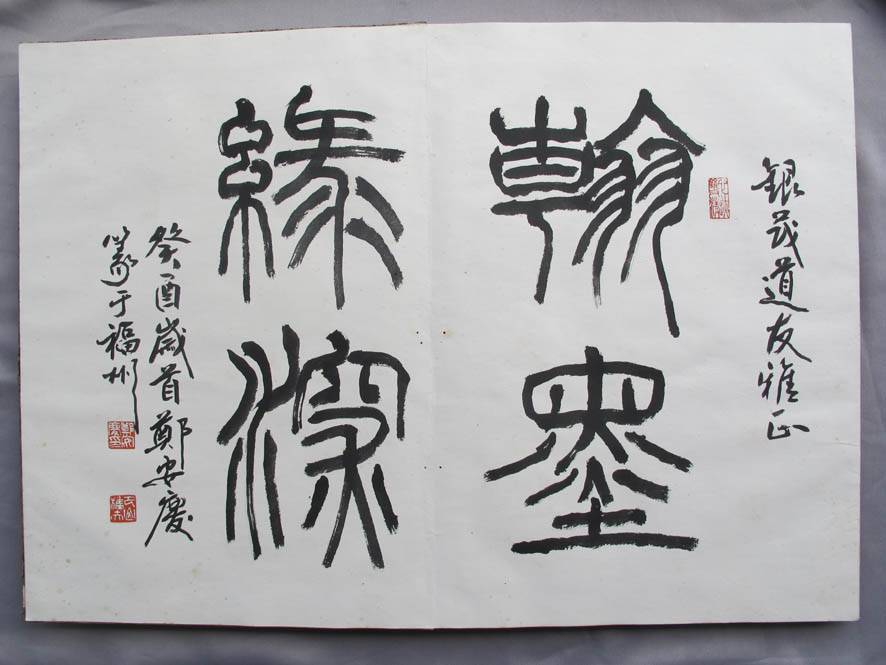 銀茂道友雅正
翰墨
緣深
癸酉歲首鄭安慶
篆于福州